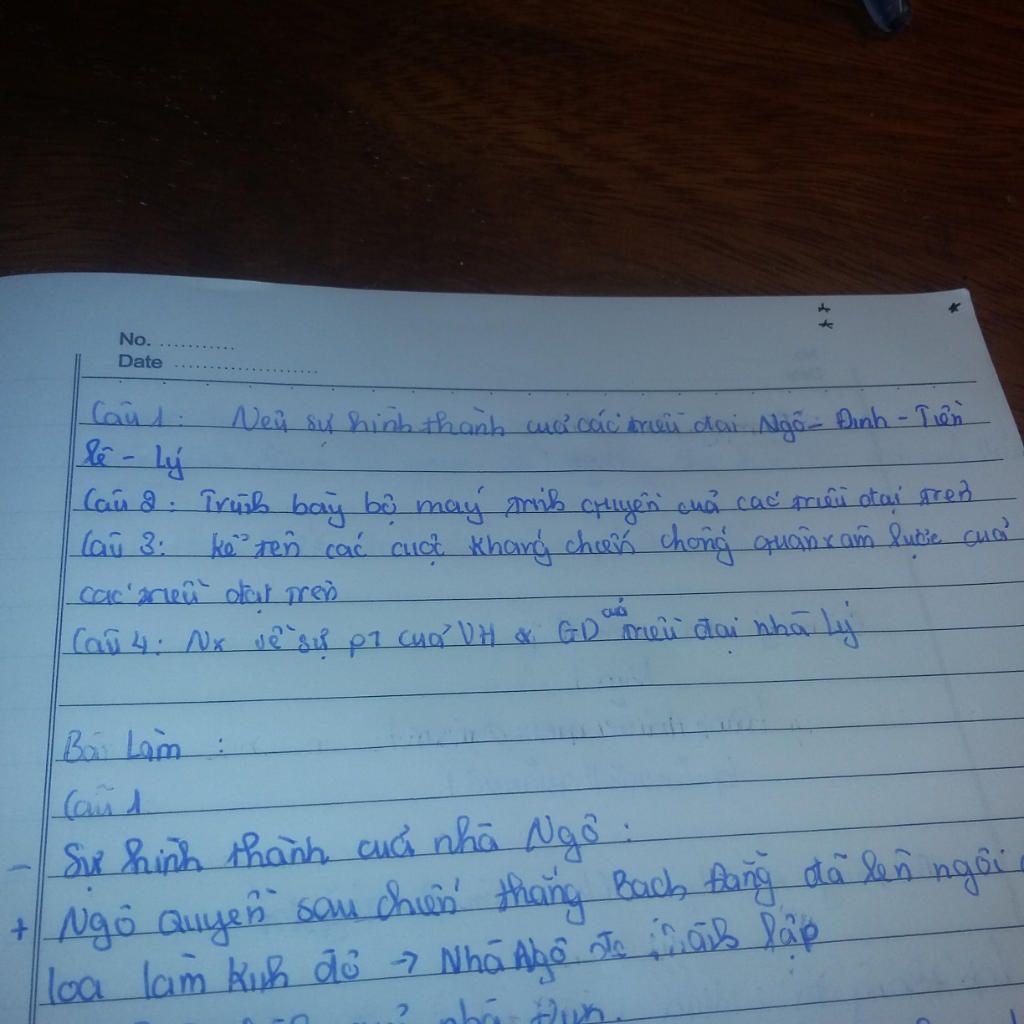 No. ...........
Date .....................
Câu 1: Nêu sự hình thành của các triều đại Ngô - Đinh - Tiền
lê - Lý
Câu 2: Trình bày bộ máy chính quyền của các triều đại trên
Câu 3: kể tên các cuộc kháng chiến chống quân xâm lược của
các triều đại trên
Câu 4: Nx về sự pT của VH & GD của triều đại nhà Lý
Bài Làm :
Câu 1
- Sự hình thành của nhà Ngô :
+ Ngô Quyền sau chiến thắng Bạch Đằng đã lên ngôi
loa làm kinh đô → Nhà Ngô lập
nhà Đinh.